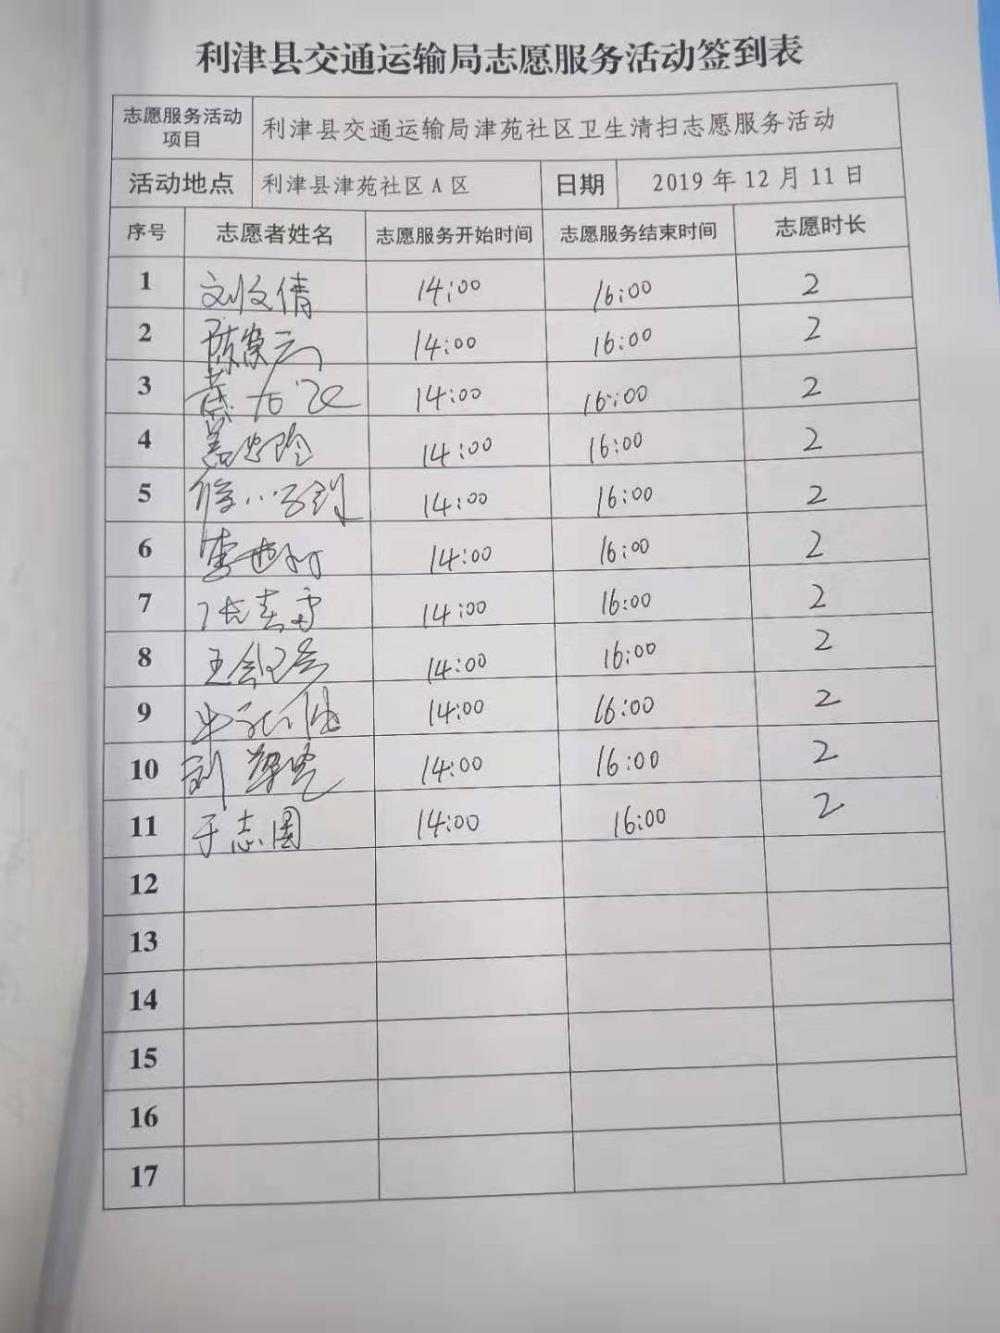 利津县交通运输局志愿服务活动签到表
志愿服务活动项目 利津县交通运输局津苑社区卫生清扫志愿服务活动
活动地点 利津县津苑社区A区 日期 2019年12月11日
序号 志愿者姓名 志愿服务开始时间 志愿服务结束时间 志愿时长
1 刘文倩 14:00 16:00 2
2 14:00 16:00 2
3 14:00 16:00 2
4 14:00 16:00 2
5 14:00 16:00 2
6 14:00 16:00 2
7 14:00 16:00 2
8 14:00 16:00 2
9 14:00 16:00 2
10 14:00 16:00 2
11 于志国 14:00 16:00 2
12
13
14
15
16
17